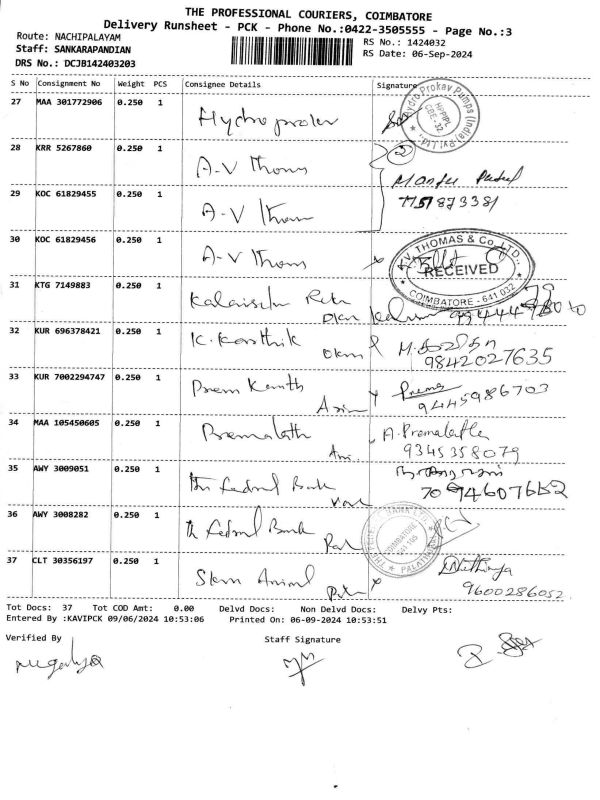 THE PROFESSIONAL COURIERS, COIMBATORE
Delivery Runsheet - PCK - Phone No.:0422-3505555 - Page No.:3
Route: NACHIPALAYAM
RS No.: 1424032
Staff: SANKARAPANDIAN
RS Date: 06-Sep-2024
DRS No.: DCJB142403203
S No Consignment No Weight PCS Consignee Details Signature
27 MAA 301772906 0.250 1
Hydro Prokav Pumps (India) Pvt. Ltd.
HPPIPL
CBE-32
28 KRR 5267860 0.250 1 A-V Thoms
29 KOC 61829455 0.250 1 A-V Thom
7757873381
30 KOC 61829456 0.250 1 A-V Thoms
A.V. THOMAS & Co. LTD.,
RECEIVED
COIMBATORE - 641 032
31 KTG 7149883 0.250 1
32 KUR 696378421 0.250 1 K. Karthik
9842027635
33 KUR 7002294747 0.250 1 Prem Kanth
Prema
9445986703
34 MAA 105450605 0.250 1 Premalath
A. Premalatha
9345358079
35 AWY 3009051 0.250 1 The Fedral Bank
36 AWY 3008282 0.250 1 The Fedral Bank
COIMBATORE
37 CLT 30356197 0.250 1
Nithinya
9600286052
Tot Docs: 37 Tot COD Amt: 0.00 Delvd Docs: Non Delvd Docs: Delvy Pts:
Entered By :KAVIPCK 09/06/2024 10:53:06 Printed On: 06-09-2024 10:53:51
Verified By Staff Signature